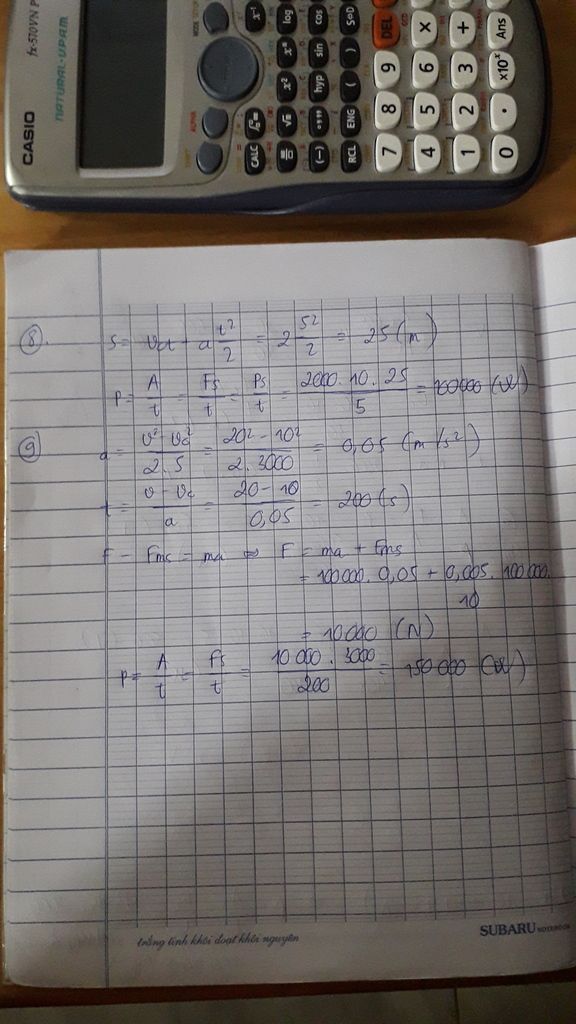 fx-570VN P
NATURAL-V.P.A.M.
CASIO
MODE
ALPHA
x⁻¹ log cos S⇔D
x² x■ sin )
CALC hyp (
(−) °’’’ RCL ENG
7 8 9 DEL
4 5 6 ×
1 2 3 +
0 • ×10ˣ Ans
8. S = v₀t + a t²/2 = 2 5²/2 = 25 (m)
P = A/t = Fs/t = Ps/t = 2000.10.25/5 = 100000 (W)
9 a = v² - v₀²/2.S = 20² - 10²/2.3000 = 0,05 (m/s²)
t = v - v₀/a = 20 - 10/0,05 = 200 (s)
F - Fms = ma ⇔ F = ma + Fms
= 100000. 0,05 + 0,005. 100000.
10
= 10000 (N)
P = A/t = Fs/t = 10 000 . 3000/200 = 150 000 (W)
trắng tinh khôi đoạt khôi nguyên
SUBARU NOTEBOOK